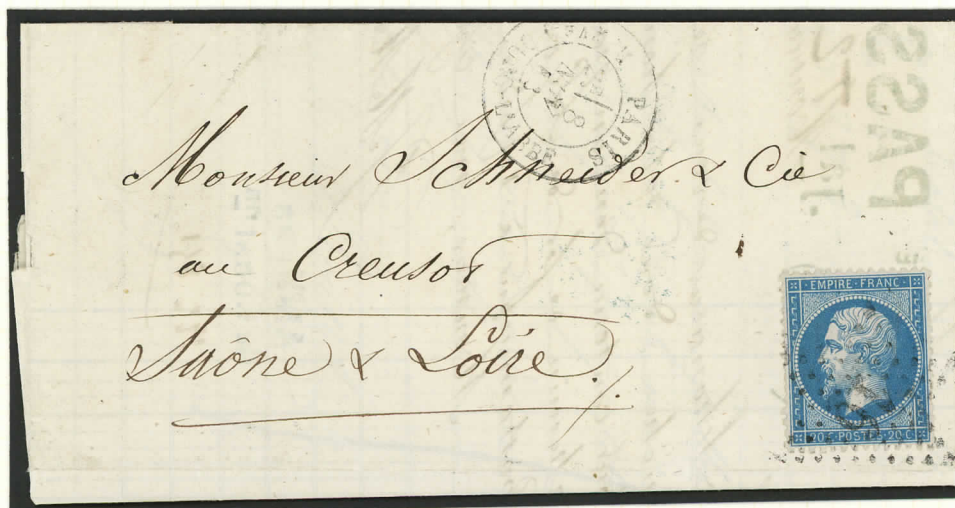 PARIS
Monsieur Schneider & Cie
au Creusot
Saône & Loire
EMPIRE · FRANC ·
20 C · POSTES · 20 C
PASS